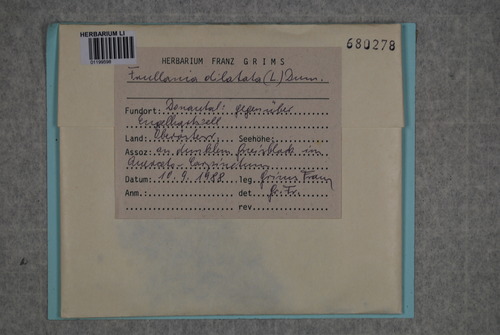 HERBARIUM LI
680278
HERBARIUM FRANZ GRIMS
Frullania dilatata (L.) Dum.
Fundort: Donautal: gegenüber
Engelhartszell
Land: Oberösterr. Seehöhe:
Assoz: an dunklem Gneisblock im
Datum: 10.9.1988 leg. Grims Franz
Anm.: det. Gr. Fr.
rev.